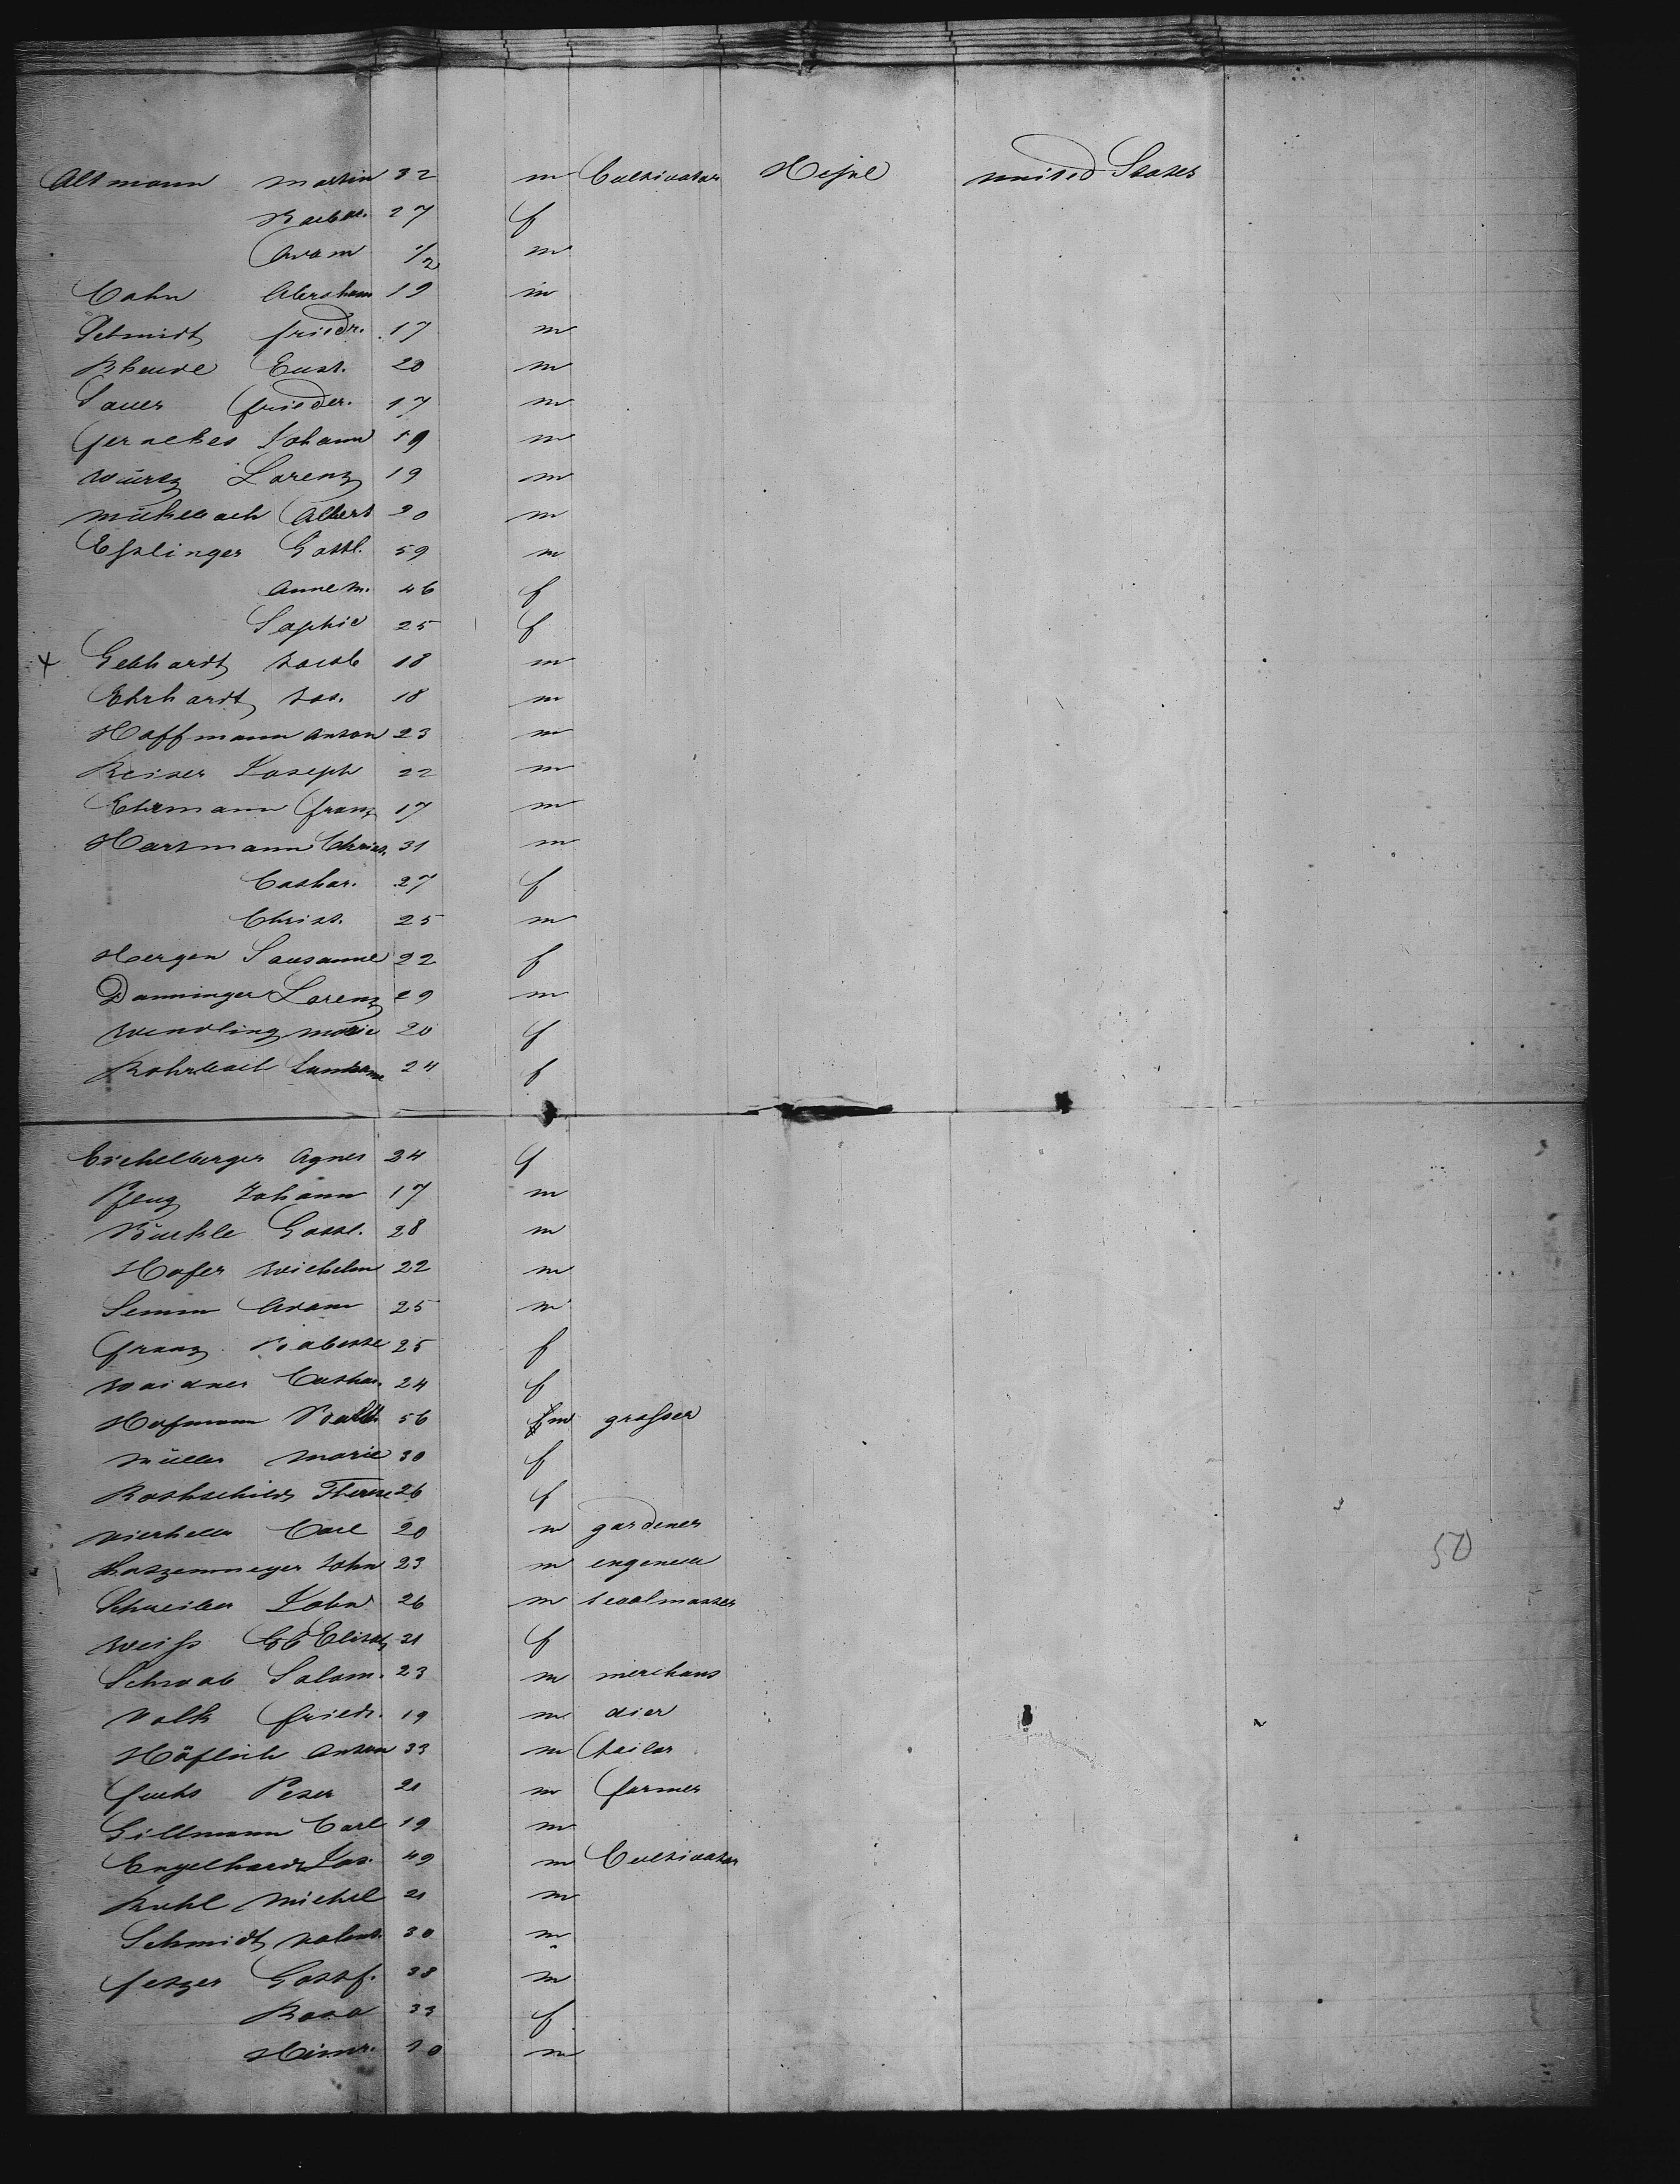 Altmann Martin 32 m Cultivator Hessel united States
Barbar. 27 f
Adam 1/2 m
Cahn Abraham 19 m
Schmidt friedr. 17 m
Rheude Eust. 20 m
Sauer frieder. 17 m
Gernekes Johann 19 m
Würtz Lorenz 19 m
Mückebach Albert 20 m
Esslinger Gottl. 59 m
Anne M. 46 f
Sophie 25 f
x Gebhardt Jacob 18 m
Ehrhardt Jos. 18 m
Hoffmann Anton 23 m
Reiser Joseph 22 m
Ehrmann franz 17 m
Hartmann Christ. 31 m
Cathar. 27 f
Christ. 25 m
Hergen Sausanne 22 f
Danninger Lorenz 29 m
Wendling Marie 20 f
Rohrbach 24 f
Eichelberger Agnes 24 f
Pflug Johann 17 m
Bürkle Gottl. 28 m
Hofer Wichelm 22 m
Semm Adam 25 m
franz Babette 25 f
Waidner Cathar. 24 f
Hofmann Balth. 56 m grosser
Müller Marie 30 f
Rothschild Therese 26 f
Vierheller Carl 20 m gardener
Hatzenmeyer John 23 m engeneer
Schreiber John 26 m scoolmaster
Weiss Elisab. 21 f
Schwab Salom. 23 m merchant
Volk friedr. 19 m dier
Höflich Anton 33 m tailor
fuchs Peter 21 m farmer
Gillmann Carl 19 m
Engelhardt Jos. 49 m Cultivator
Ruhl Michel 21 m
Schmidt Valent. 30 m
fetzer Gottf. 38 m
Rosa 33 f
Heinr. 10 m
50